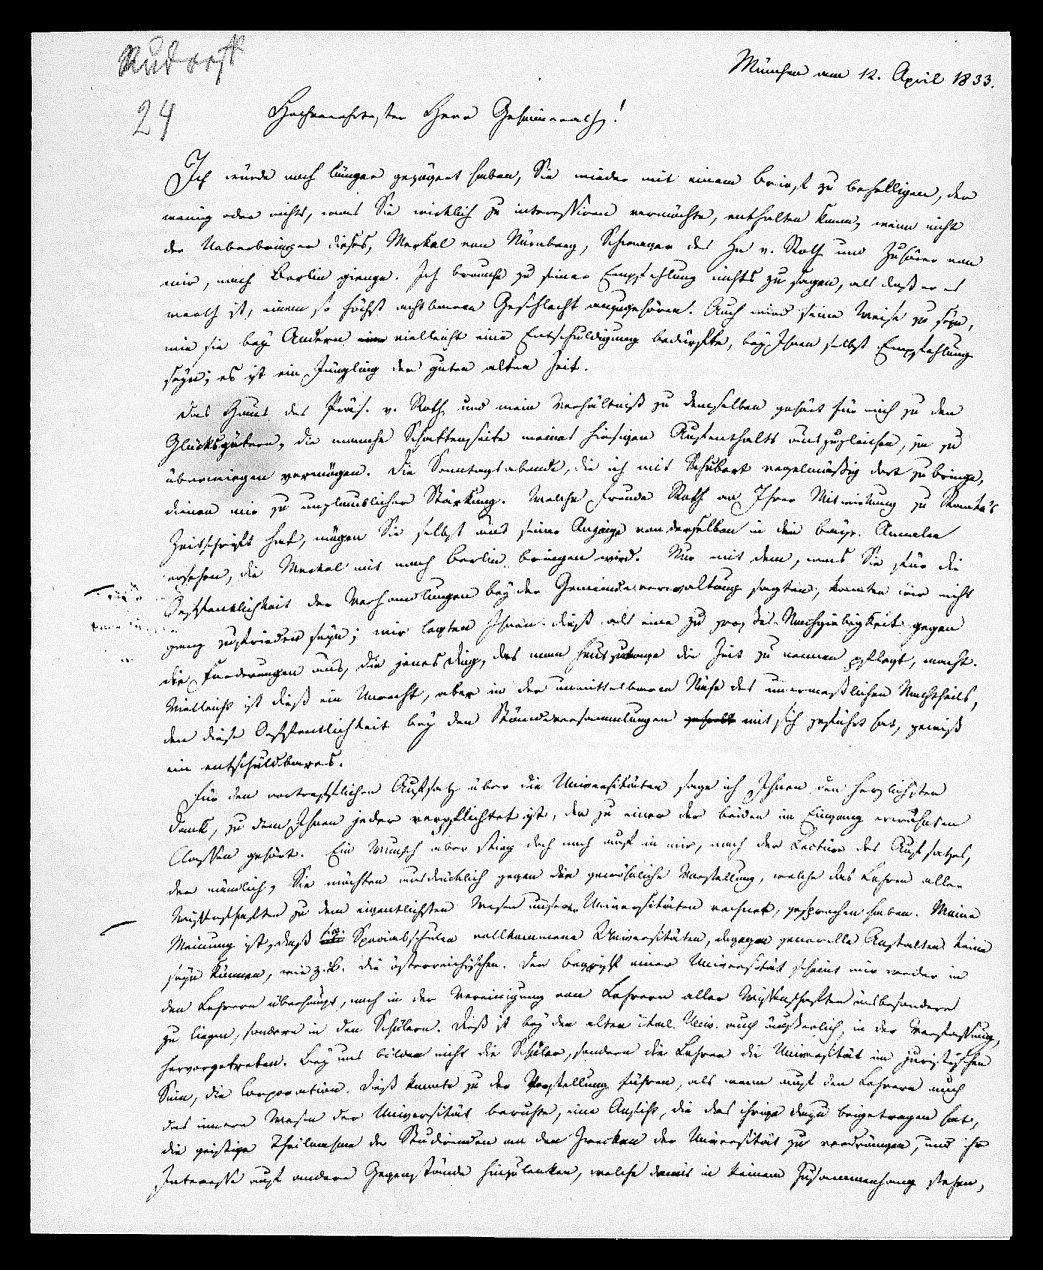 Rudorff
24
München am 12. April 1833.
Hochverehrtester Herr Geheimerath!
Ich würde noch länger gezögert haben, Sie wieder mit einem Briefe zu behelligen, der
wenig oder nichts, was Sie wirklich zu interessiren vermöchte, enthalten kann, wenn nicht
der Ueberbringer dieses, Merkel von Nürnberg, Schwager des Hn v. Roth und Zuhörer von
mir, nach Berlin gienge. Ich brauche zu seiner Empfehlung nichts zu sagen, als daß er es
werth ist, einem so höchst achtbaren Geschlecht anzugehören. Auch wird seine Weise zu seyn,
wie sie bey Andern vielleicht eine Entschuldigung bedürfte, bey Ihnen selbst Empfehlung
seyn; es ist ein Jüngling der guten alten Zeit.
Das Haus des Präs. v. Roth und mein Verhältniß zu demselben gehört für mich zu den
Glücksgütern, die manche Schattenseite meines hiesigen Aufenthalts auszugleichen, ja zu
überwiegen vermögen. Die Sonntagsabende, die ich mit Schubert regelmäßig dort zubringe,
dienen mir zu unglaublicher Stärkung. Welche Freude Roth an Ihrer Mitwirkung zu Ranke's
Zeitschrift hat, mögen Sie selbst aus seiner Anzeige von derselben in den bayr. Annalen
ersehen, die Merkel mit nach Berlin bringen wird. Nur mit dem, was Sie für die
Oeffentlichkeit der Verhandlungen bey der Gemeindeverwaltung sagten, konnten wir nicht
ganz zufrieden seyn; wir legten Ihnen dieß als eine zu große Nachgiebigkeit gegen
die Forderungen aus, die jenes Ding, das man heutzutage die Zeit zu nennen pflegt, macht.
Vielleicht ist dieß ein Unrecht, aber in der unmittelbaren Nähe des unermeßlichen Nachtheils,
den diese Oeffentlichkeit bey den Ständeversammlungen mit sich geführt hat, gewiß
ein entschuldbares.
Für den vortrefflichen Aufsatz über die Universitäten sage ich Ihnen den herzlichsten
Dank, zu dem Ihnen jeder verpflichtet ist, der zu einer der beiden im Eingang erwähnten
Classen gehört. Ein Wunsch aber stieg doch noch auf in mir, nach der Lectüre des Aufsatzes,
der nämlich, Sie möchten ausdrücklich gegen die gewöhnliche Vorstellung, welche das Lehren aller
Wissenschaften zu dem eigentlichsten Wesen unserer Universitäten rechnet, gesprochen haben. Meine
Meinung ist, daß sog. Specialschulen vollkommene Universitäten, dagegen generelle Anstalten keine
seyn können, wie z.B. die österreichischen. Der Begriff einer Universität scheint mir weder in
den Lehrern überhaupt, noch in der Vereinigung von Lehrern aller Wissenschaften insbesondere
zu liegen, sondern in den Schülern. Dieß ist bey den alten ital. Univ. auch äußerlich, in der Verfassung,
hervorgetreten. Bey uns bilden nicht die Schüler, sondern die Lehrer die Universität im juristischen
Sinn, die Corporation. Dieß konnte zu der Vorstellung führen, als wenn auf den Lehrern auch
das innere Wesen der Universität beruhe, eine Ansicht, die das ihrige dazu beigetragen hat,
die geistige Theilnahme der Studirenden an den Zwecken der Universität zu verdrängen, und ihr
Interesse auf andere Gegenstände hinzulenken, welche damit in keinem Zusammenhang stehen,